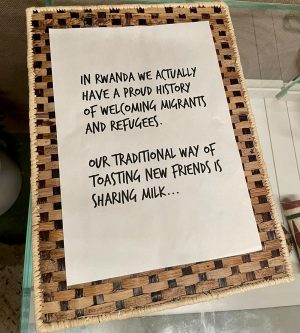 IN RWANDA WE ACTUALLY
HAVE A PROUD HISTORY
OF WELCOMING MIGRANTS
AND REFUGEES.
OUR TRADITIONAL WAY OF
TOASTING NEW FRIENDS IS
SHARING MILK...